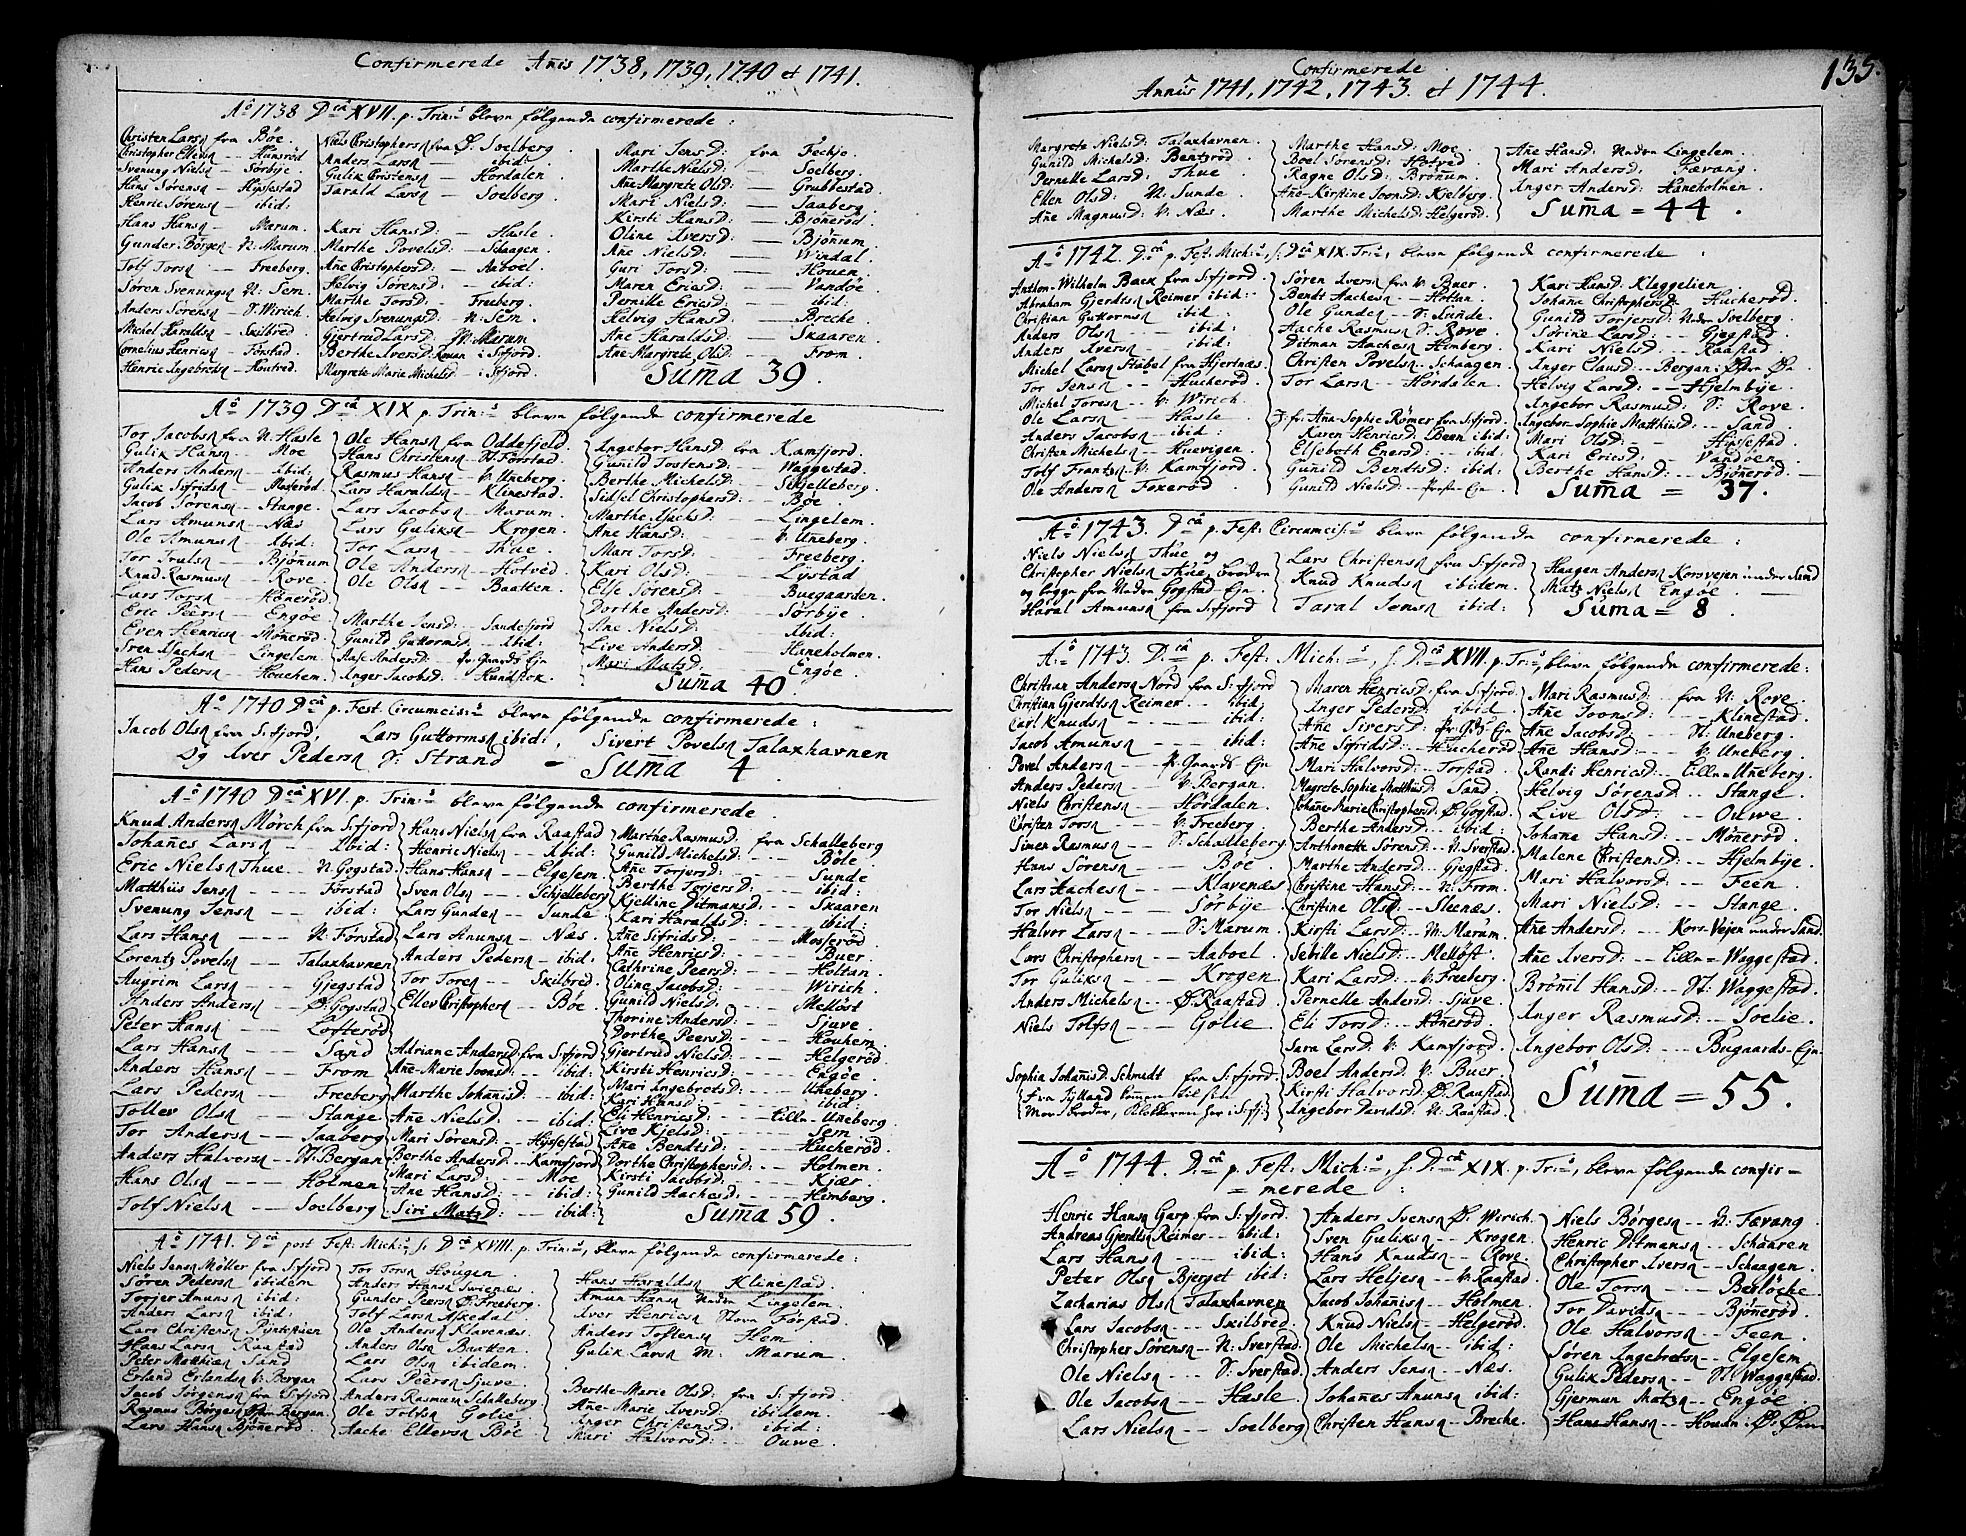 Confirmerede Añis 1738, 1739, 1740 et 1741.
Aô 1738 Dcâ XVII. p. Trin: bleve følgende confirmerede:
Christen Larsn fra Bøe.
Christopher Ellevsn -- Hunsrød
Svenung Nielsn - Sørbÿe.
Hans Sørensn - Hÿsestad
Henric Sørensn - ibid:
Hans Hansn - Marum.
Gunder Børgen N: Marum
Tolf Torsn - Freeberg.
Søren Svenungsn N: Sem.
Anders Sørensn - S. Wirich.
Michel Haraldsn - Skilbred.
Cornelius Henricsn - Förstad.
Henric Ingebretsn - Houtved.
Niels Christophersn fra Ø. Soelberg.
Anders Larsn - ibid:
Gulik Cristensn - Hørdalen.
Tarald Larsn - Soelberg.
Kari HansD: - Hasle.
Marthe PovelsD: - Schaagen.
Añe ChristophersD: - Aaboel.
Helvig SørensD: - ibid:
Marthe TorsD: - Freeberg.
Helvig SvenungsD - N: Sem.
Giertrud LarsD: N: Marum
Berthe IversD: Kouan i S:fjord.
Margrete Marie MichelsD - i S:fjord.
Mari JensD: fra Fechje.
Marthe NielsD: - Soelberg.
Añe Margrete OlsD: - Grubbestad.
Mari NielsD: - Saaberg.
Kirsti HansD: - Bjöñerød.
Oline IversD: - Bjönum.
Añe NielsD: - Windal.
Guri TorsD: - Houen.
Maren EricsD: - Vandöe.
Pernille EricsD: - ibid:
Helvig HansD: - Breche.
Añe HaraldsD: - Skaaren.
Añe Margrete OlsD: - From.
Suma 39.
Aô 1739 Dcâ XIX p. Trin: bleve følgende confirmerede
Tor Jacobsn fra N: Hasle
Gulik Hansn - Moe
Anders Andersn - ibid:
Gulik Sifridsn - Moserød.
Jacob Sørensn - Stange.
Lars Amunsn - Næs
Ole Amunsn - ibid:
Tor Trulsn - Bjönum
Knud Rasmusn - Rove.
Lars Torsn - Hönerød.
Eric Peersn - Engöe
Even Henricsn - Möñerød.
Iven Isachsn - Lingelem.
Hans Pedersn - Houchem.
Ole Hansn fra Oddefjeld.
Hans Christensn - St: Forstad.
Rasmus Hansn - V: Uneberg.
Lars Haraldsn - Klinestad.
Lars Jacobsn - Marum.
Lars Guliksn - Krogen.
Tor Larsn - Thue.
Ole Andersn - Hotved.
Ole Olsn - Baatten.
Marthe JensD: - Sandefjord
Gunild GuttormsD - ibid:
Aase AndersD: Pr: Gaards Eje
Inger JacobsD: - Hundstok.
Ingebor HansD: fra Kamfjord.
Guñild TostensD: - Waggestad.
Berthe MichelsD: - Schjelleberg.
Sidsel ChristophersD: - Bøe.
Marthe IsachsD: - Lingelem.
Añe HansD: - V: Uneberg.
Mari TorsD: - Freeberg.
Kari OlsD: - Lÿstad.
Else SørensD: - Buegaarden.
Dorthe AndersD: - Sørbÿe.
Añe NielsD: - ibid:
Live AndersD: - Haneholmen.
Mari MatsD: - Engöe.
Suma 40.
Aô 1740 Dcâ p. Fest. Circumcis: bleve følgende confirmerede:
Jacob Olsn fra S:fjord, Lars Guttormsn ibid:, Sivert Povelsn Talaxhavnen
og Iver Pedersn S: Strand - Suma 4.
Aô 1740 Dcâ XVI. p. Trin: bleve følgende confirmerede.
Knud Andersn Mörch fra S:fjord
Johañes Larsn - ibid:
Eric Nielsn Thue - N: Gogstad
Matthiis Jensn - Förstad
Svenung Jensn - ibid:
Lars Hansn - N: Førstad
Lorentz Povelsn - Talaxhavnen
Augrim Larsn - Gjegstad
Anders Andersn - Ø: Gogstad
Peter Hansn - Lofterød
Lars Hansn - Sand
Anders Hansn - From
Lars Pedersn - Freeberg
Tollev Olsn - Stange
Tor Andersn - Saaberg
Anders Halversn - St. Bergan
Hans Olsn - Holmen
Tolf Nielsn - Soelberg
Hans Nielsn fra Raastad
Henric Nielsn - ibid:
Hans Hansn - Elgesem.
Sven Olsn - Schjelleberg
Lars Gundersn - Sunde
Lars Anunsn - Næs.
Anders Pedersn - ibid:
Tor Toresn - Skilbred.
Ellev Christophersn - Bøe.
Adriane AndersD fra S:fjord
Añe-Marie JoonsD: - ibid:
Marthe JohañisD: - ibid:
Añe NielsD: - ibid:
Mari SørensD: - Hÿssestad
Berthe AndersD: - Kamfjord
Mari LarsD: - Moe
Añe HansD: - ibid:
Siri MatsD: - ibid:
Marthe RasmusD: fra Schalleberg
Gunild MichelsD: - Böle.
Añe TorjersD: - Sunde
Berthe TorjersD: - ibid:
Kjelline DitmansD: - Skaaren
Kari HaraldsD: - ibid:
Añe SifridsD: - Moserød.
Añe HenricsD: - Buer.
Cathrine PeersD: - Holtan.
Oline JacobsD: - Wirich.
Gunild NielsD: - Melløst
Thorine AndersD: - Sjuve.
Dorthe PeersD: - Houhem.
Gjertrud NielsD: - Helgerød
Kirsti HenricsD: - Engöe.
Mari IngebretsD: - Uneberg.
Kari HansD: - ibid:
Eli HenricsD: - Lille-Uneberg.
Live KjelsD: - Sem.
Añe BendtsD: - Hucherød.
Dorthe ChristophersD: - Holmen.
Kirsti JacobsD: - Kjær.
Gunild AachesD: - Himberg.
Suma 59.
Aô 1741. Dcâ post Fest: Mich:, s: Dcâ XVIII. p. Trin:, bleve følgende confirmerede:
Niels Jensn Möller fra S:fjord
Søren Pedersn ibidem
Torjer Amunsn ibid:
Anders Larsn ibid:
Lars Christensn
Hans Larsn Raastad
Peter Matthiæsn Sand
Erland Erlandsn V: Bergan
Jacob Jørgensn fra S:fjord
Rasmus Børgesn Bergan
Lars Hansn Bjönerød.
Tor Torsn Hougen.
Anders Hansn
Gunder Peersn Ø. Freeberg.
Tolf Larsn Askedal.
Ole Andersn Klavenæs.
Anders Olsn Baatten.
Lars Olsn ibidem.
Lars Peersn Sjuve.
Anders Rasmusn Schalleberg
Ole Tolfsn Golie.
Aache Ellevsn Bøe
Hans Haraldsn Klinestad.
Amun Hansn Under Lingelem.
Iver Henricsn Store Førstad.
Anders Tostensn Hem.
Gulik Larsn N: Marum.
Berthe-Marie OlsD: fra S:fjord.
Añe-Marie IversD: ibidem.
Inger ChristensD: ibid:
Mari HalvorsD: - Ouwe.
Confirmerede
Annis 1741, 1742, 1743. et 1744.
135.
Margrete NielsD: Talaxhavnen.
Gunild MichelsD: Bentsrød
Pernelle LarsD: Thue
Ellen OlsD: N: Sunde
Añe MagnusD: V: Næs.
Marthe HansD: Moe.
Boel SørensD: Hotved
Ragne OlsD: Brönum.
Añe-Kirstine JoonsD: Kjelberg.
Marthe MichelsD: Helgerød.
Añe HansD: Under Lingelem.
Mari AndersD: Fævang.
Inger AndersD: Haneholmen.
Suma = 44.
Aô 1742. D: p. Fest: Mich:, s: Dcâ XIX. Tri:, bleve følgende confirmerede:
Anthon-Wilhelm Back fra S:fjord.
Abraham Gjerdtsn Reimer ibid:
Christian Guttormsn ibid:
Anders Olsn - ibid:
Anders Iversn - ibid:
Michel Larsn Stabel fra Hjertnæs
Tor Jensn - Hucherød.
Michel Toresn - V: Wirich.
Ole Larsn - Hasle.
Anders Jacobsn - ibid:
Christen Michelsn - Huevigen.
Tolf Frantzsn V: Kamfjord.
Ole Andersn Foxerød.
Søren Iversn fra V: Buer.
Bendt Aachesn - Holtan.
Ole Gundersn - V: Sunde.
Aache Rasmusn S: Rove.
Ditman Aachesn Himberg.
Christen Povelsn - Schaagen.
Tor Larsn - Hørdalen.
J:fr: Aña-Sophie Rømer fra S:fjord.
Karen HenricsD: Bæen ibid:
Elsebeth EnersD: - ibid:
Gunild BendtsD: ibid:
Gunild NielsD: - Præste-Eje
Kari HansD: Kleggelien.
Johane ChristophersD: Hucherød.
Gunild TorjersD: Under Soelberg.
Sørine LarsD: - Gjegstad.
Kari NielsD: - Raastad.
Inger ClausD: - Bergan: Østre Ø.
Helvig LarsD: - Hjelmbÿe.
Ingebor RasmusD: S: Rove.
Ingebor Sophie MatthiisD: - Sand.
Mari OlsD: - Hÿssestad.
Kari EricsD: - Vandöen.
Berthe HansD: - Bjönerød.
Suma = 37.
Aô 1743. Dcâ p. Fest: Circumcis: bleve følgende confirmerede:
Niels Nielsn Thue og
Christopher Nielsn Thue, brødre
og begge fra Under Gogstad Eje.
Haral Amunsn fra S:fjord
Lars Christensn fra S:fjord
Knud Knudsn ibidem.
Taral Jensn ibid:
Haagen Andersn Korsvejen under Sand
Matz Nielsn Engöe.
Suma = 8
Aô 1743. Dcâ p. Fest: Mich:, s. Dcâ XVII. p. Tri:, bleve følgende confirmerede:
Christian Andersn Nord fra S:fjord
Christian Gjerdtsn Reimer - ibid
Carl Knudsn - ibid:
Jacob Amunsn - ibid:
Povel Andersn - Pr: Gaards Eje
Anders Pedersn - V: Bergan.
Niels Christensn - Hørdalen.
Christen Torsn - V: Freeberg
Simen Rasmusn - S: Schalleberg
Hans Sørensn - Bøe
Lars Aachesn - Klavenæs
Tor Nielsn - Sørbÿe.
Halvor Larsn - S: Marum.
Lars Christophersn - Aaboel.
Tor Guliksn - Krogen
Anders Michelsn - Ø: Raastad
Niels Tolfsn - Golie.
Sophia JohañisD: Schmidt fra S:fjord:
Maren HenricsD: fra S:fjord
Inger PedersD: ibid
Añe SiversD: Pr: Gds Eje
Añe SifridsD: - Hucherød
Mari HalvorsD: - Torstad.
Magrete Sophie MatthiisD: Sand.
Johane Marie ChristophersD. Ø. Gogstad.
Berthe AndersD: - ibid:
Anthonette SørensD: - N: Sverstad.
Marthe AndersD: Gjegstad.
Christine HansD: - N: From.
Christine OlsD: - Steenæs.
Kirsti LarsD: - N: Marum.
Sebille NielsD: - Melløst.
Kari LarsD: - V: Freeberg.
Pernelle AndersD: Sjuve.
Eli TorsD: - Hönerød.
Sara LarsD: V: Kamfjord.
Boel AndersD: V: Buer.
Kirsti HalvorsD: Ø. Raastad.
Ingebor DavidsD: N: Raastad.
Mari RasmusD: - fra N: Rove.
Añe JoonsD: - Klinestad.
Añe JacobsD: - St. Uneberg.
Añe HansD: - V: Uneberg.
Randi HenricsD: - Lille-Uneberg.
Helvig SørensD: - Stange.
Live OlsD: - Ouwe.
Johane HansD: - Mönerød.
Malene ChristensD: - Hjelmbÿe.
Mari HalvorsD: - Feen.
Mari NielsD: - Stange.
Añe AndersD: - Kors-Vejen under Sand.
Añe IversD: - Lille-Waggestad.
Brönil HansD: - St. Waggestad.
Inger RasmusD: - Soelie.
Ingebor OlsD: - Bugaards-Eje
Suma = 55.
Aô 1744. D:câ p. Fest: Mich:, s. D:câ XIX. p. Tri:, bleve følgende confir-
= merede:
Henric Hansn Garp fra S:fjord.
Andreas Gjerdtsn Reimer - ibid:
Lars Hansn - ibid:
Peter Olsn Bjerget ibid:
Zacharias Olsn Talaxhavnen
Lars Jacobsn - Skilbred.
Christopher Sørensn - N: Sverstad
Ole Nielsn - S: Sverstad.
Ole Jacobsn - Hasle
Lars Nielsn - Soelberg
Anders Svensn Ø. Wirich.
Sven Guliksn - Krogen.
Hans Knudsn - Rove.
Lars Heljesn - V: Raastad.
Jacob Johañisn - Holmen.
Knud Nielsn - Helgerød.
Ole Michelsn - ibid:
Anders Jensn - Næs.
Johañes Anunsn ibid:
Christen Hansn - Breche.
Niels Børgesn - N: Fævang.
Henric Ditmansn - Schaaren
Christopher Iversn - Schaagen.
Ole Torsn - Berløche
Tor Davidsn - Bjönerød.
Ole Halvorsn - Feen.
Søren Ingebretsn - Elgesem
Gulik Pedersn - St. Waggestad.
Gjermun Matzsn - Engöe
Hans Hansn - Houan. Ø: Øen